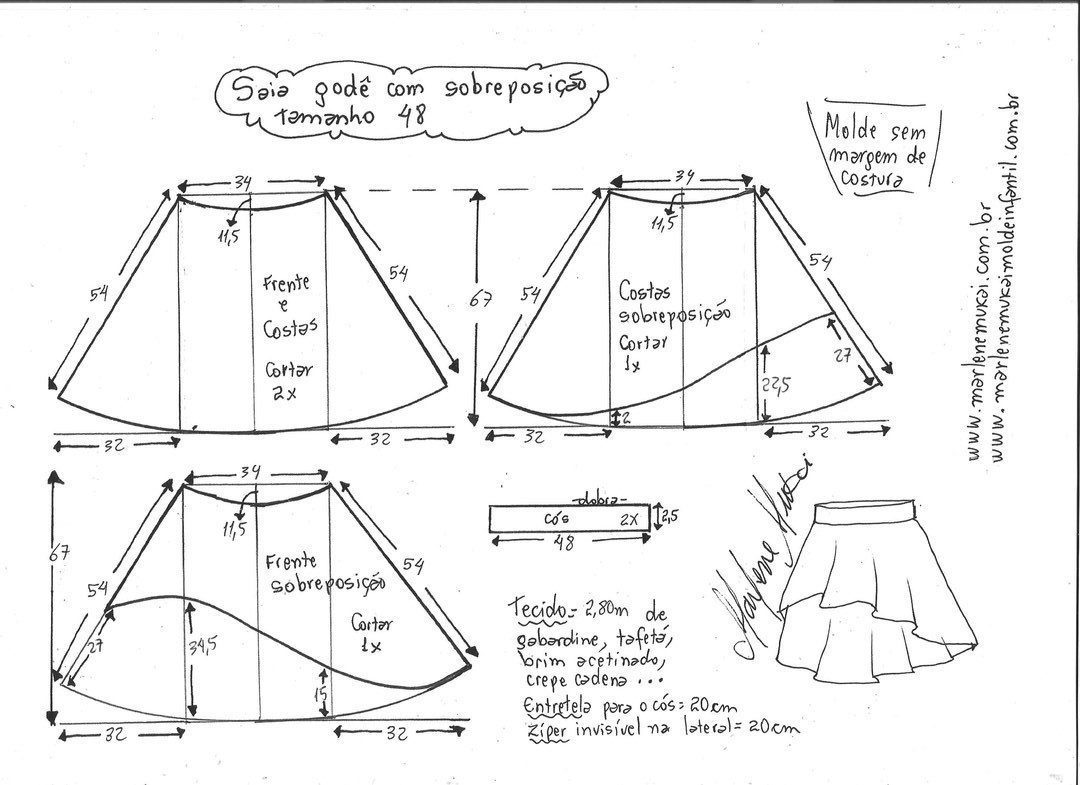 Saia godê com sobreposição,
tamanho 48
Molde sem
margem de
costura
www.marlenemukai.com.br
www.marlenemukaimoldeinfantil.com.br
34
11,5
54
54
Frente
e
Costas
Cortar
2x
32
32
67
34
11,5
54
54
Costas
sobreposição
Cortar
1x
27
22,5
2
32
32
34
11,5
67
54
54
Frente
sobreposição
Cortar
1x
27
34,5
15
32
32
dobra
cós 2X
2,5
48
Marlene Mukai
Tecido= 2,80m de
gabardine, tafetá,
brim acetinado,
crepe cadena ...
Entretela para o cós= 20cm
Zíper invisível na lateral= 20cm